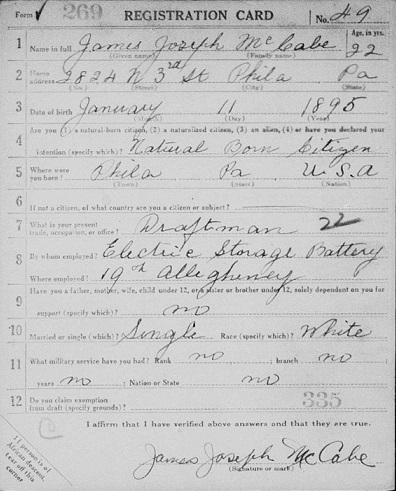 Form 1 269 REGISTRATION CARD No. 49
1 Name in full James Joseph McCabe Age, in yrs. 22
(Given name) (Family name)
2 Home address 2824 N 3rd St Phila Pa
(No.) (Street) (City) (State)
3 Date of birth January 11 1895
(Month) (Day) (Year)
4 Are you (1) a natural-born citizen, (2) a naturalized citizen, (3) an alien, (4) or have you declared your
intention (specify which)? Natural Born Citizen
5 Where were you born? Phila Pa U.S.A
(Town) (State) (Nation)
6 If not a citizen, of what country are you a citizen or subject?
7 What is your present trade, occupation, or office? Draftman 22
8 By whom employed? Electric Storage Battery
Where employed? 19th Allegheney
9 Have you a father, mother, wife, child under 12, or a sister or brother under 12, solely dependent on you for
support (specify which)? no
10 Married or single (which)? Single Race (specify which)? White
11 What military service have you had? Rank no ; branch no ;
years no ; Nation or State no
12 Do you claim exemption from draft (specify grounds)? 335
I affirm that I have verified above answers and that they are true.
James Joseph McCabe
(Signature or mark)
If person is of African descent, tear off this corner